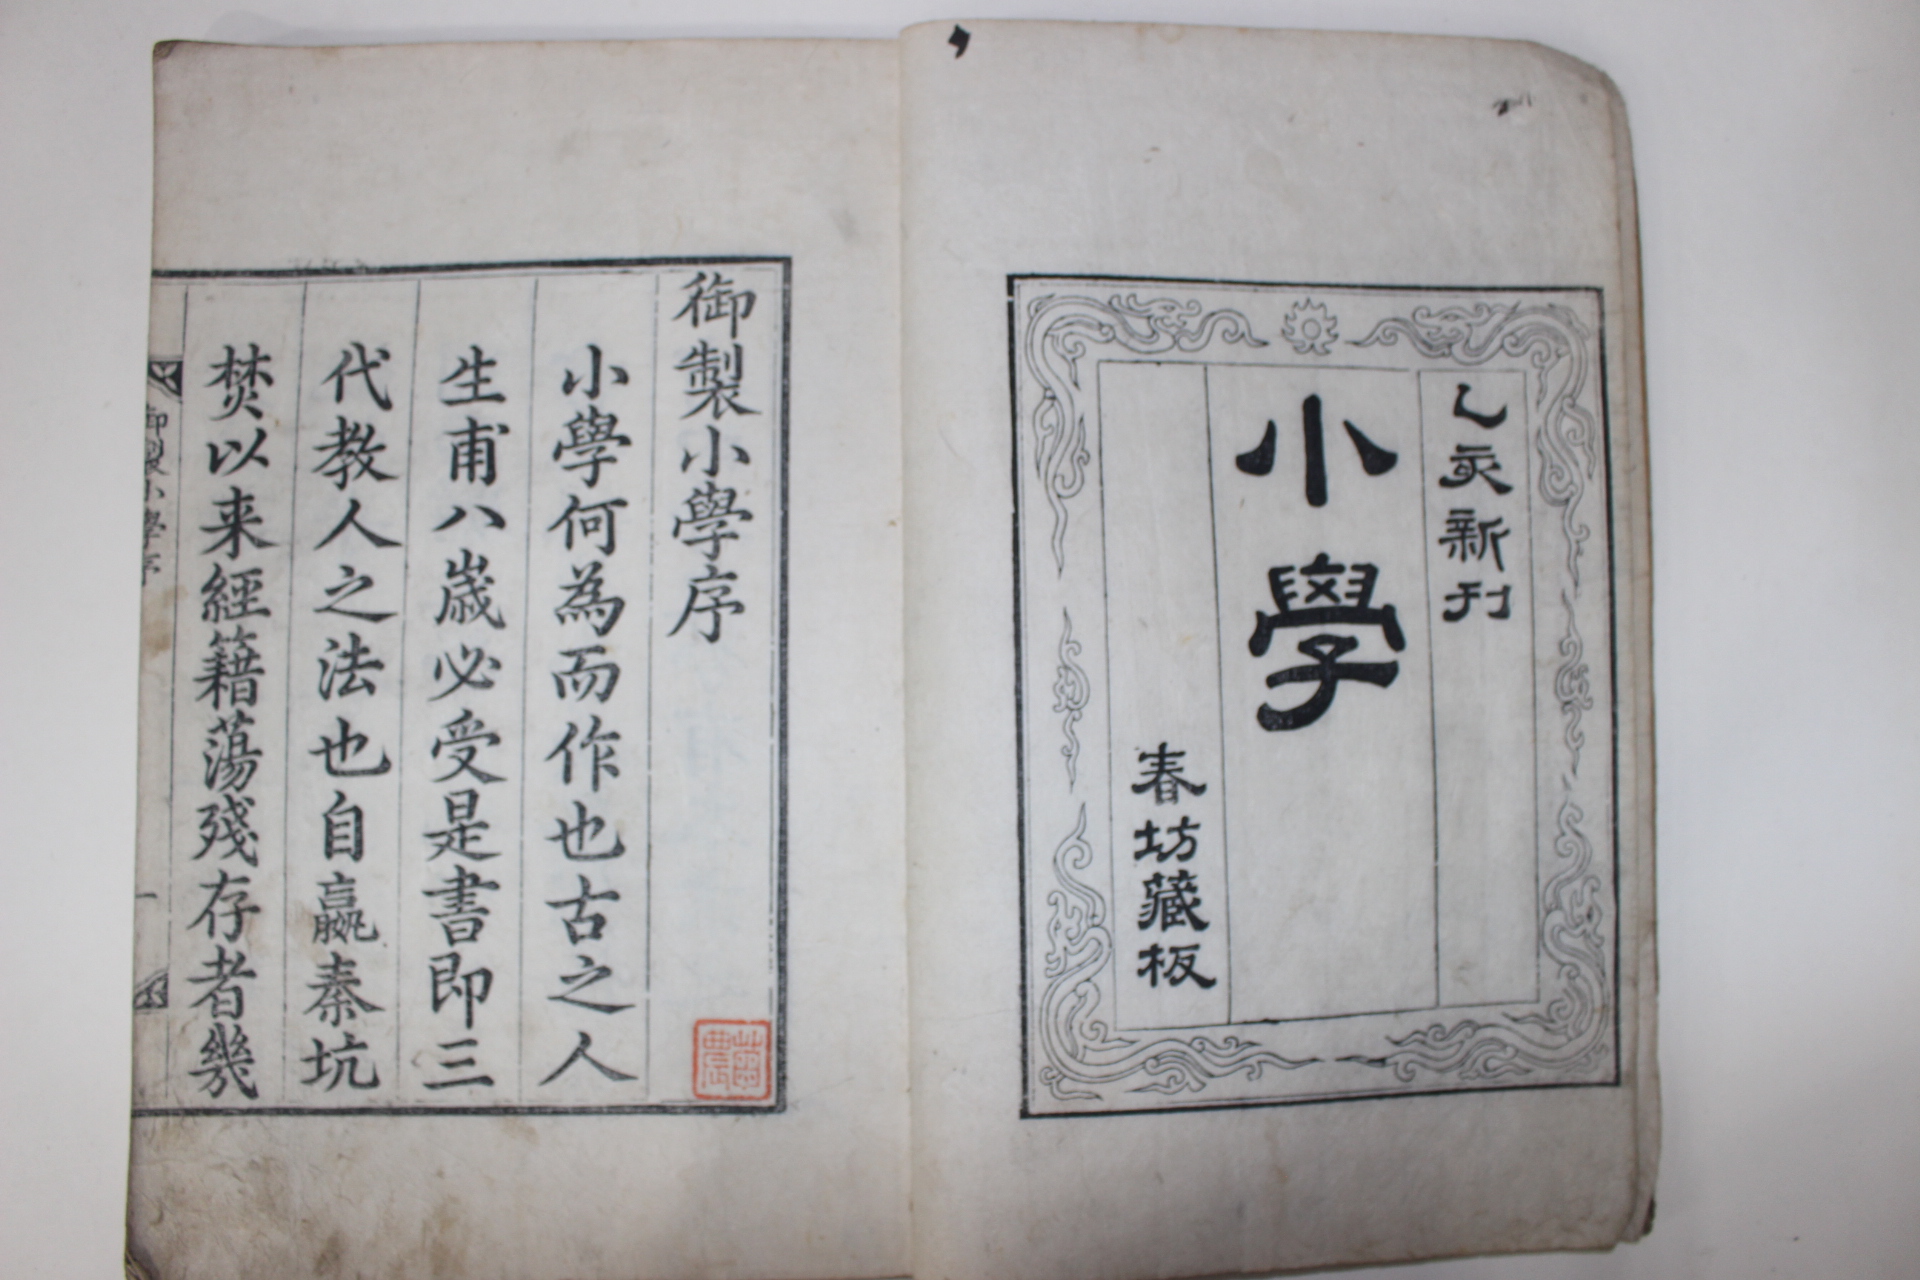 乙亥新刊
小學
春坊藏板
御製小學序
小學何為而作也古之人
生甫八歲必受是書即三
代教人之法也自嬴秦坑
焚以来經籍蕩殘存者幾
御製小學序
一